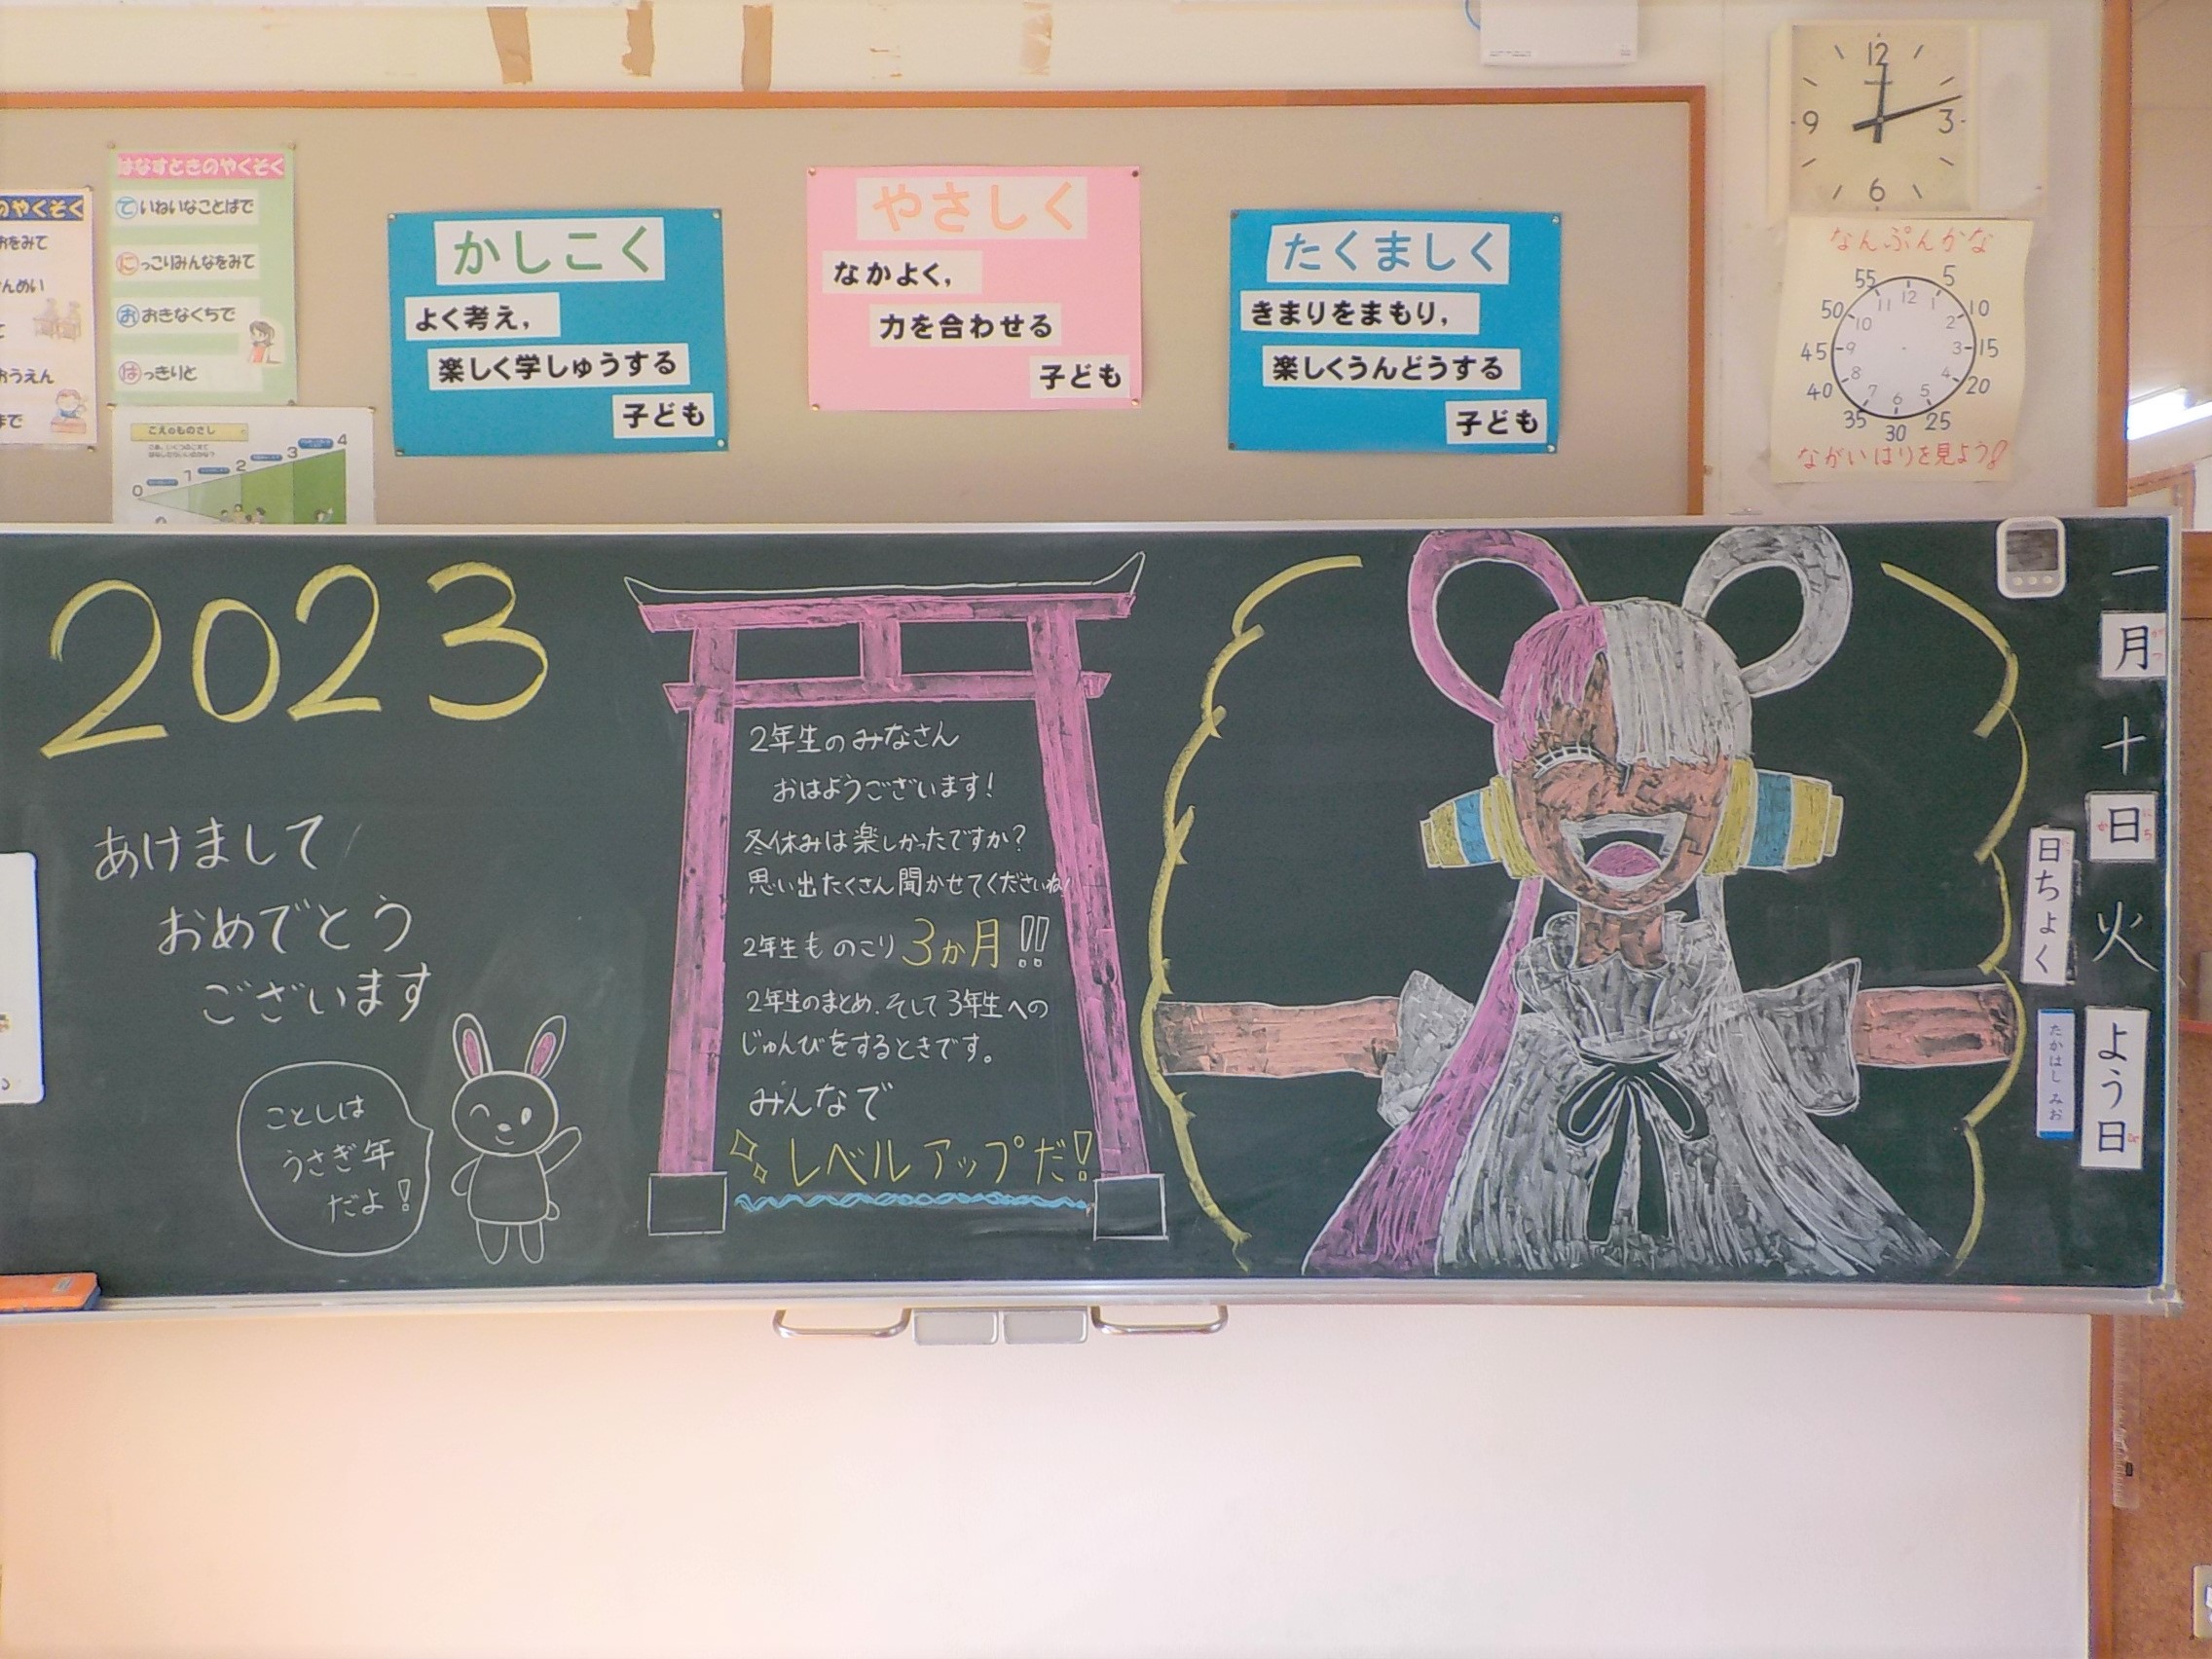 のやくそく
おをみて
んめい
て
おうえん
まで
はなすときのやくそく
ていねいなことばで
にっこりみんなをみて
おおきなくちで
はっきりと
こえのものさし
0 1 2 3 4
かしこく
よく考え，
楽しく学しゅうする
子ども
やさしく
なかよく，
力を合わせる
子ども
たくましく
きまりをまもり，
楽しくうんどうする
子ども
12
9 3
6
なんぷんかな
55 5
50 10
45 15
40 20
35 25
30
11 12 1
10 2
9 3
8 4
7 6 5
ながいはりを見よう!
2023
あけまして
おめでとう
ございます
ことしは
うさぎ年
だよ!
2年生のみなさん
おはようございます!
冬休みは楽しかったですか?
思い出たくさん聞かせてくださいね!
2年生ものこり3か月!!
2年生のまとめ、そして3年生への
じゅんびをするときです。
みんなで
レベルアップだ!
一月十日火よう日
日ちょく
たかはし みお